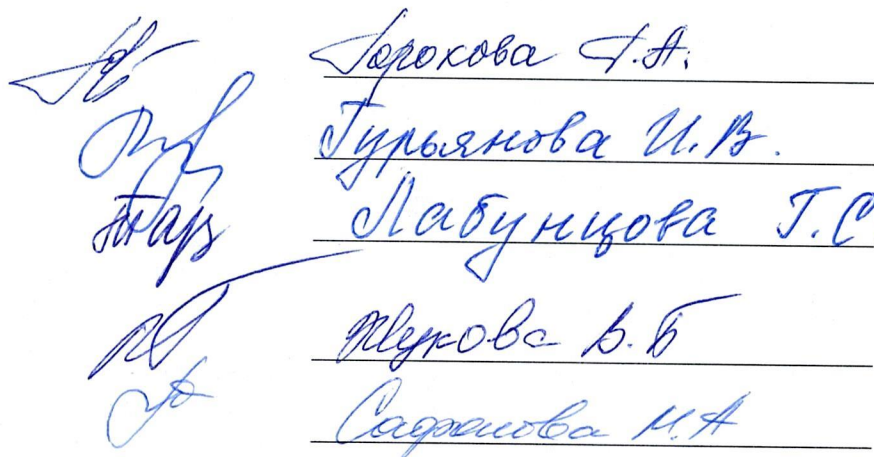 Горохова Г.А.
Гурьянова И.В.
Лабунцова Т.С
Жукова В.Б
Сафонова Н.А